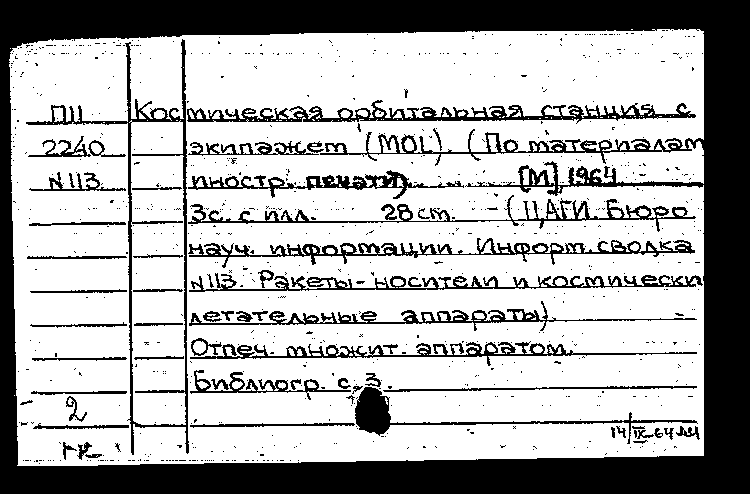 П11 Космическая орбитальная станция с
2240 экипажем (MOL). (По материалам
N113 иностр. печати) ..... [М], 1964
3с. с илл. 28 cm. – (ЦАГИ. Бюро
науч. информации. Информ. сводка
N113. Ракеты-носители и космически
летательные аппараты).
Отпеч. множит. аппаратом.
Библиогр. с. 3.
2
14/IX-64